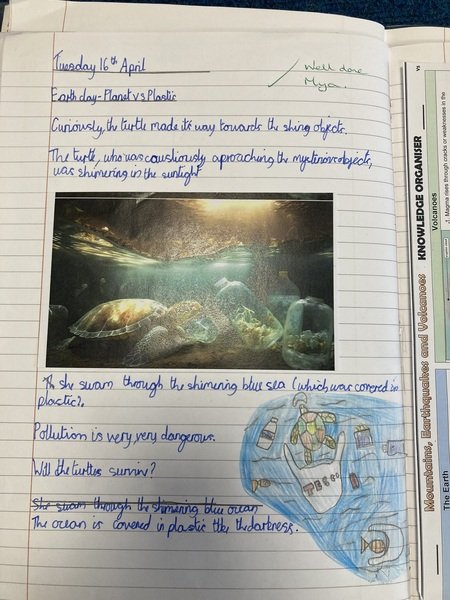 Tuesday 16th April
Well done
Mya.
Earth day - Planet vs Plastic
Curiously, the turtle made its way towards the shing objects.
The turtle, who was caustiously aproaching the mysterious objects,
was shimering in the sunlight
As she swam through the shimering blue sea (which was covered in
plastic).
Pollution is very, very dangerous.
Will the turtles survive?
She swam through the shimering blue ocean
The ocean is covered in plastic like the darkness.
Mountains, Earthquakes and Volcanoes
KNOWLEDGE ORGANISER
Volcanoes
Magma rises through cracks or weaknesses in the
The Earth